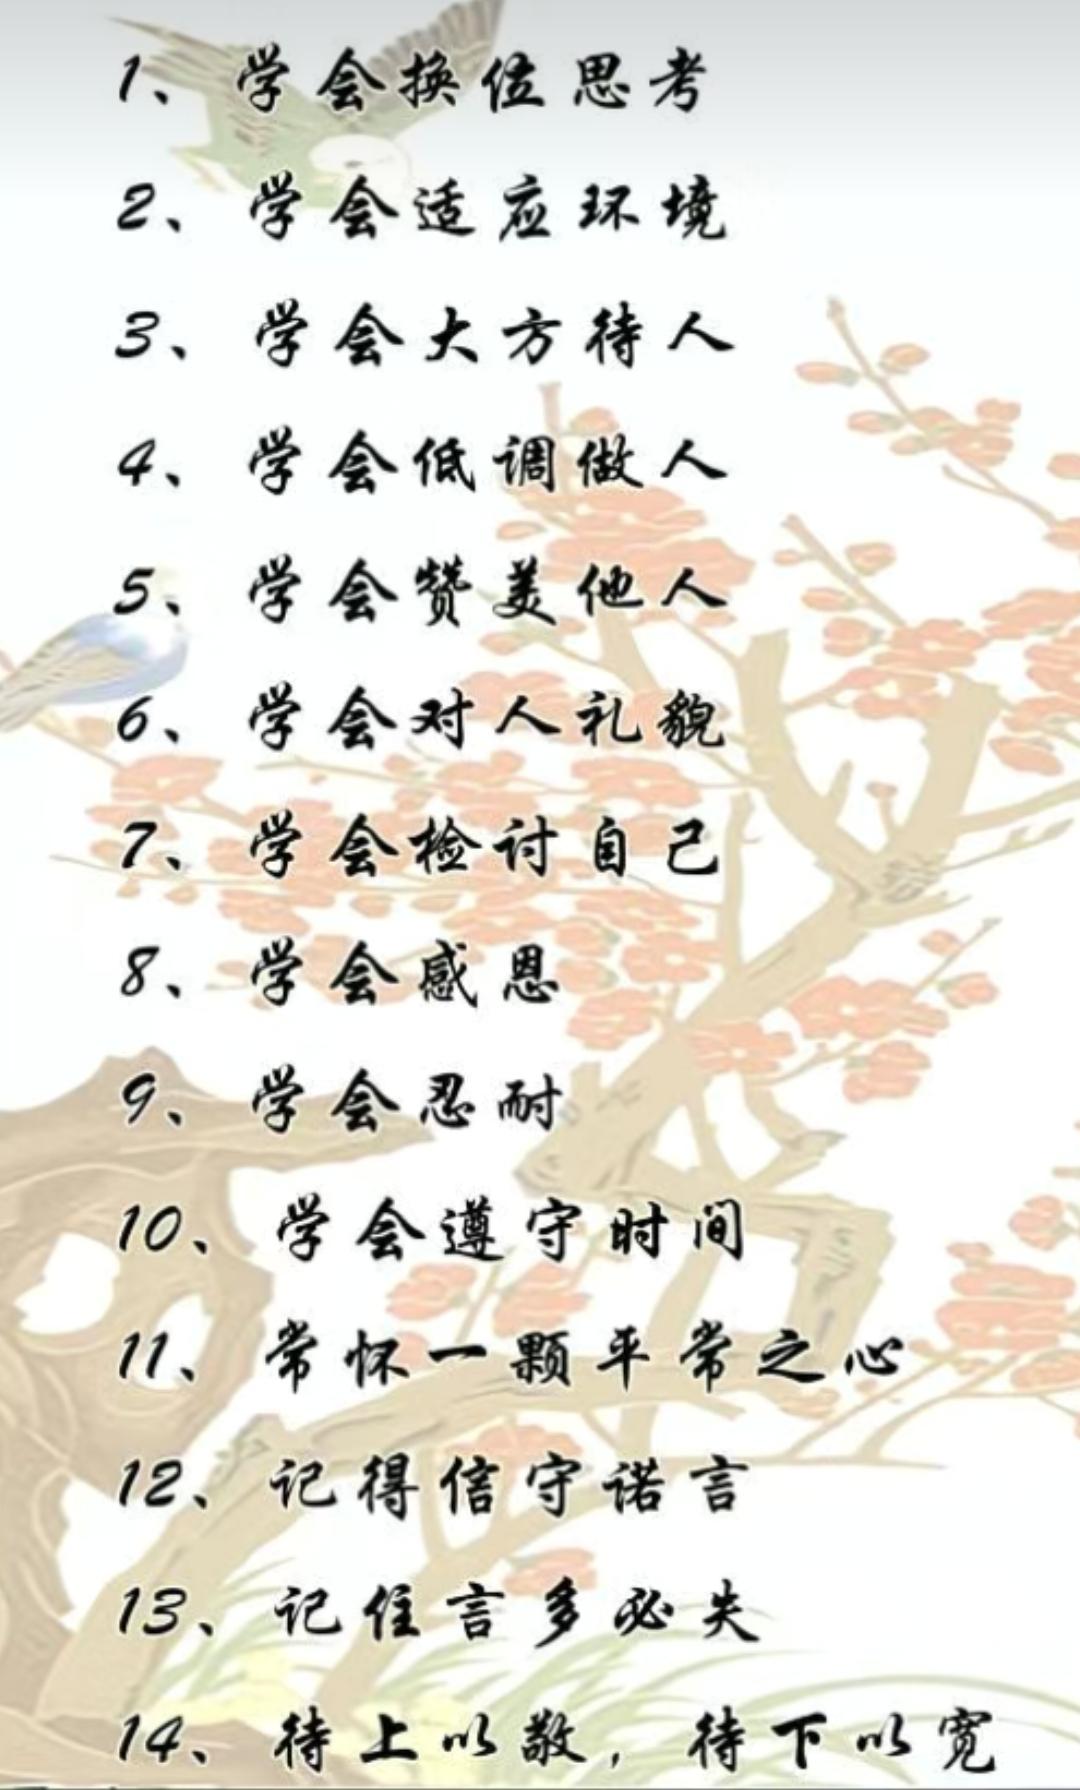 1、学会换位思考
2、学会适应环境
3、学会大方待人
4、学会低调做人
5、学会赞美他人
6、学会对人礼貌
7、学会检讨自己
8、学会感恩
9、学会忍耐
10、学会遵守时间
11、常怀一颗平常之心
12、记得信守诺言
13、记住言多必失
14、待上以敬，待下以宽